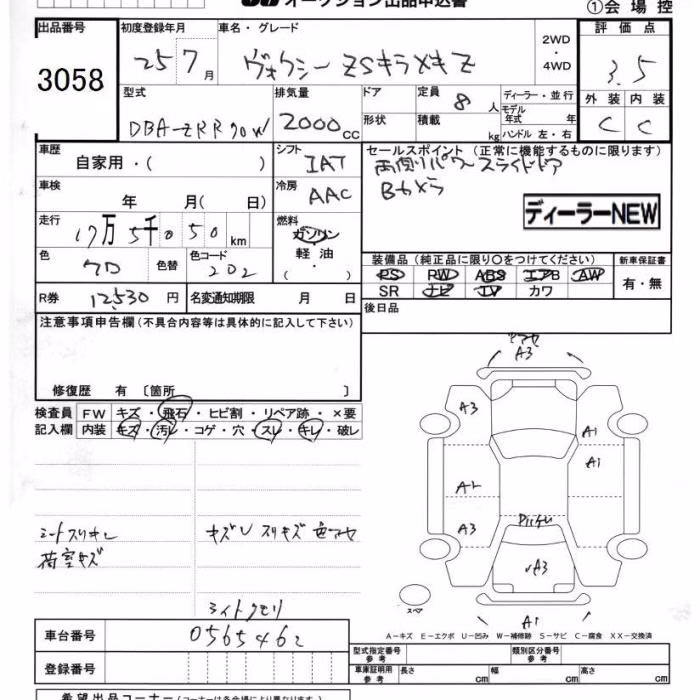 オークション出品申込書
①会場控
出品番号 初度登録年月 車名・グレード 2WD・4WD 評価点
3058 25 7月 ヴォクシー ZSキラメキ Z 3.5
型式 排気量 ドア 定員 ディーラー・並行 外装 内装
DBA-ZRR70W 2000cc 8人 モデル年式 年
形状 積載 kg ハンドル 左・右 C C
車歴 シフト セールスポイント(正常に機能するものに限ります)
自家用・( ) IAT 両側パワースライドドア
車検 冷房 Bカメラ
年 月( 日) AAC
ディーラーNEW
走行 燃料
17万5千050km ガソリン
軽油
( ・ )
装備品(純正品に限り○をつけてください) 新車保証書
色 色替 色コード PS PW ABS エアB AW 有・無
クロ 202 SR ナビ TV カワ
R券 12530円 名変通知期限 月 日 後日品
注意事項申告欄(不具合内容等は具体的に記入して下さい)
A3
A3
A1
A1
修復歴 有〔箇所 〕
検査員 FW キズ・飛石・ヒビ割・リペア跡・×要
記入欄 内装 キズ・汚レ・コゲ・穴・スレ・キレ・破レ
A3
シートスリキレ キズU スリキズ 色アセ
荷室キズ
A3
スペア
ライトクモリ
A1
車台番号 0565462
A-キズ E-エクボ U-凹み W-補修跡 S-サビ C-腐食 XX-交換済
登録番号
型式指定番号 参考 類別区分番号 参考
車庫証明用 参考 長さ cm 幅 cm 高さ cm
希望出品コーナー(コーナーは各会場により異なります。)